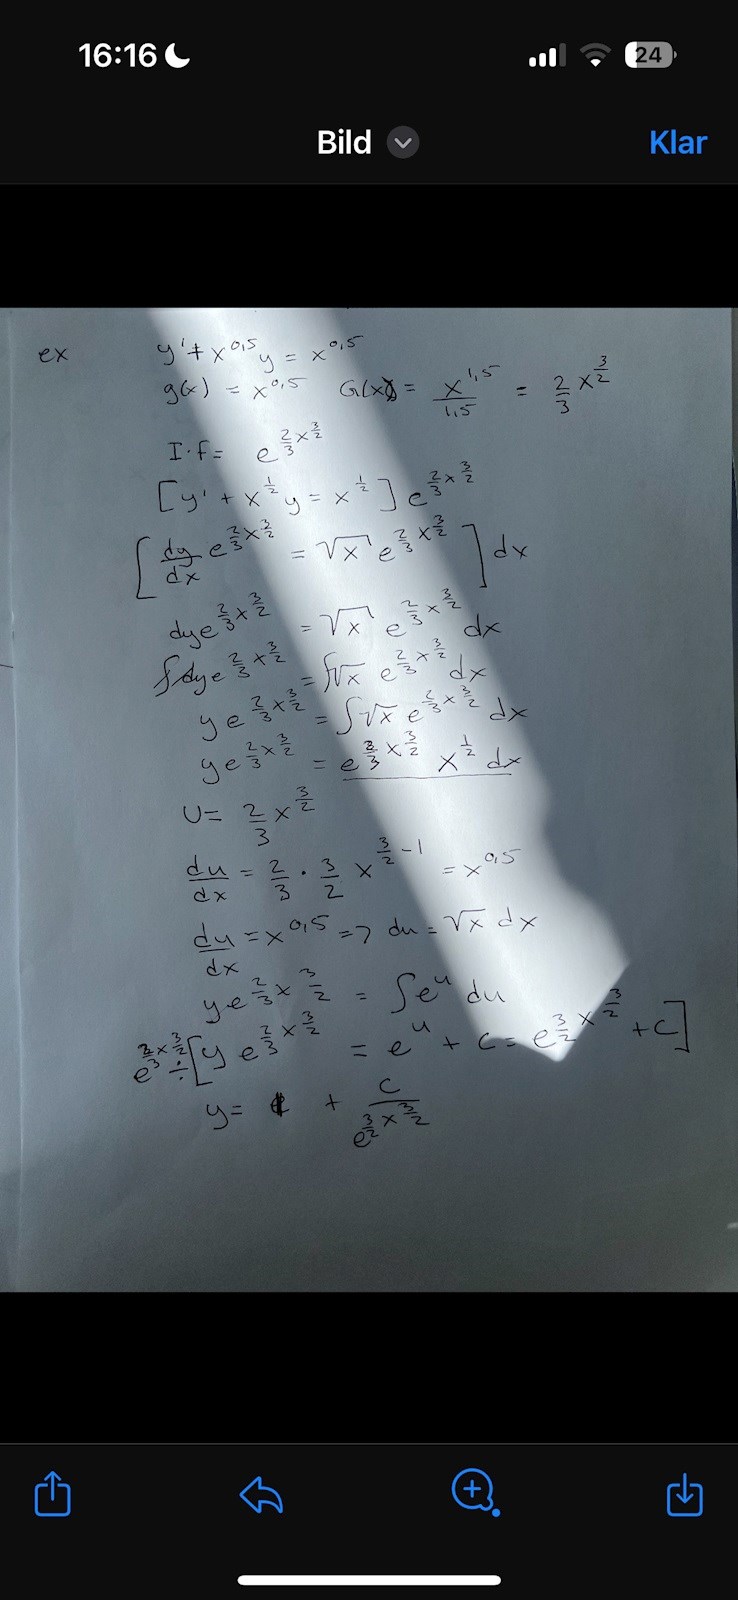 16:16
24
Bild
Klar
ex y' + x^0,5 y = x^0,5
g(x) = x^0,5 G(x) = x^1,5/1,5 = 2/3 x^3/2
I.f = e^(2/3 x^3/2)
[y' + x^1/2 y = x^1/2] e^(2/3 x^3/2)
[dy/dx e^(2/3 x^3/2) = √x e^(2/3 x^3/2)] dx
dy e^(2/3 x^3/2) = √x e^(2/3 x^3/2) dx
∫dy e^(2/3 x^3/2) = ∫√x e^(2/3 x^3/2) dx
y e^(2/3 x^3/2) = ∫√x e^(2/3 x^3/2) dx
y e^(2/3 x^3/2) = e^(2/3 x^3/2) x^1/2 dx
U = 2/3 x^3/2
du/dx = 2/3 · 3/2 x^(3/2 - 1) = x^0,5
du/dx = x^0,5 => du = √x dx
y e^(2/3 x^3/2) = ∫e^u du
e^(2/3 x^3/2) ÷ [y e^(2/3 x^3/2) = e^u + C = e^(3/2 x^3/2) + C]
y = 1 + C/e^(3/2 x^3/2)